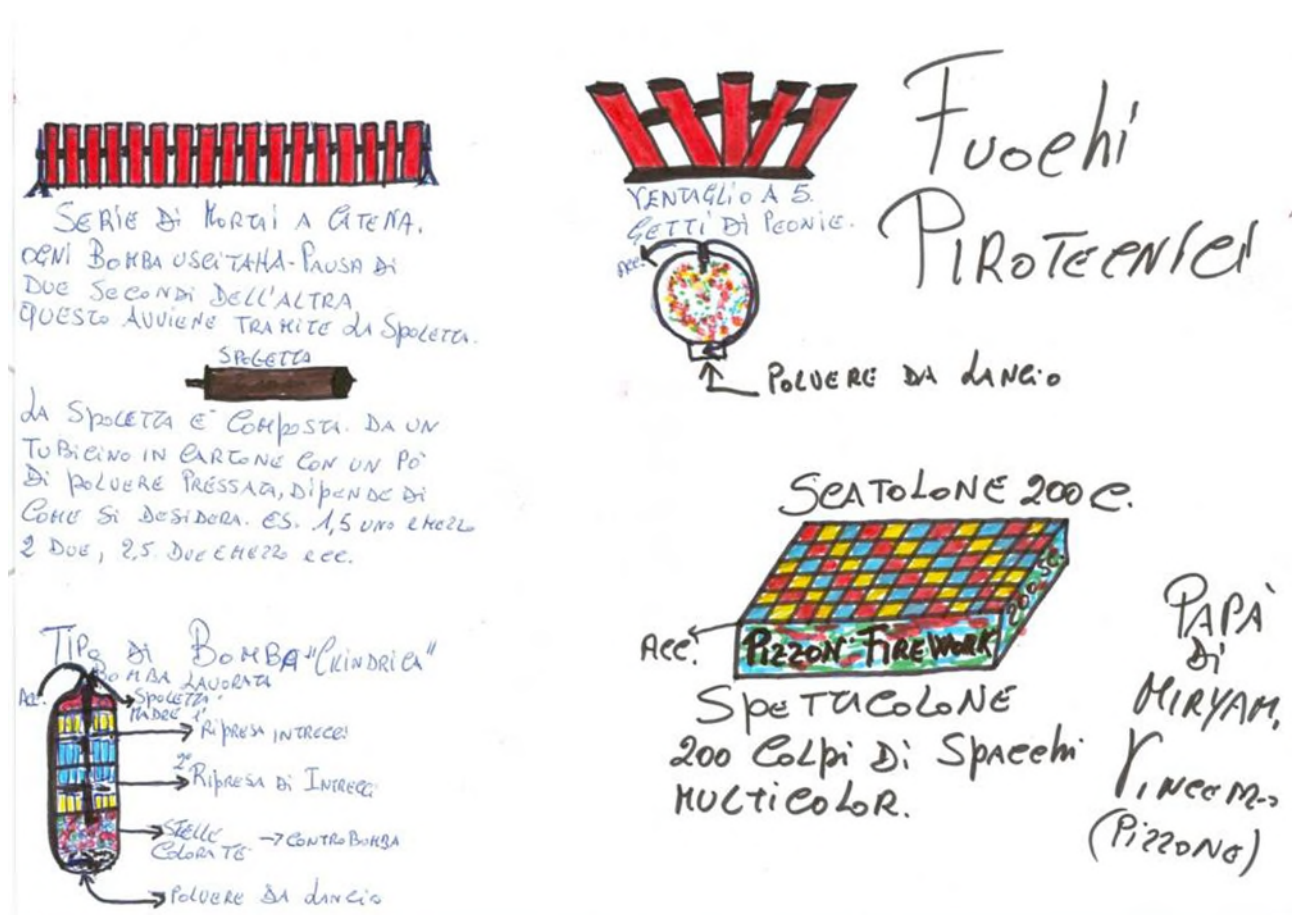 SERIE DI MORTAI A CATENA.
OGNI BOMBA USCITA HA-PAUSA DI
DUE SECONDI DELL'ALTRA
QUESTO AVVIENE TRAMITE LA SPOLETTA.
SPOLETTA
LA SPOLETTA E' COMPOSTA. DA UN
TUBICINO IN CARTONE CON UN PÒ
DI POLVERE PRESSATA, DIPENDE DI
COME SI DESIDERA. ES. 1,5 UNO E MEZZO
2 DUE, 2,5. DUE E MEZZO ECC.
TIPO DI BOMBA "CILINDRICA"
BOMBA LAVORATA
ACC.
SPOLETTA
MADRE 1°
RIPRESA INTRECCI
2°
RIPRESA DI INTRECCI
STELLE
COLORATE → CONTROBOMBA
POLVERE DA LANCIO
VENTAGLIO A 5.
GETTI DI PEONIE.
ACC.
POLVERE DA LANCIO
FUOCHI
PIROTECNICI
SCATOLONE 200 C.
200 SC.
ACC.
PIZZON FIREWORK
SPETTACOLONE
200 COLPI DI SPACCHI
MULTICOLOR.
PAPÀ
DI
MIRYAM.
(PIZZONE)